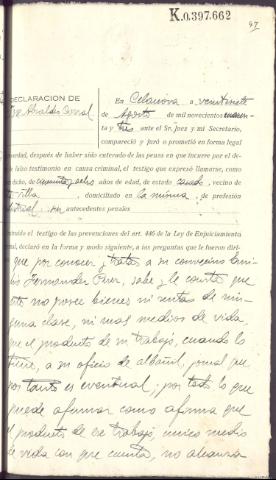 K.0.397.662
47
DECLARACION DE
En Celanova a veintisiete
de Agosto de mil novecientos cuaren-
ta y tres ante el Sr. Juez y mi Secretario,
compareció y juró o prometió en forma legal
verdad, después de haber sido enterado de las penas en que incurre por el de-
falso testimonio en causa criminal, el testigo que expresó llamarse, como
dicho, de cuarenta y ocho años de edad, de estado casado, vecino de
villa, domiciliado en la misma, de profesión
antecedentes penales
instruído el testigo de las prevenciones del art. 446 de la Ley de Enjuiciamiento
criminal, declaró en la forma y modo siguiente, a las preguntas que le fueron diri-
que por conocer y tratar a su convecino
Fernandez sabe y le consta que
este no posee bienes ni rentas de nin-
guna clase, ni mas medios de vida
que el producto de su trabajo, cuando lo
tiene, a su oficio de albañil, jornal que
por tanto es eventual; por todo lo que
puede afirmar como afirma que
el producto de ese trabajo, unico medio
de vida con que cuenta, no alcanza